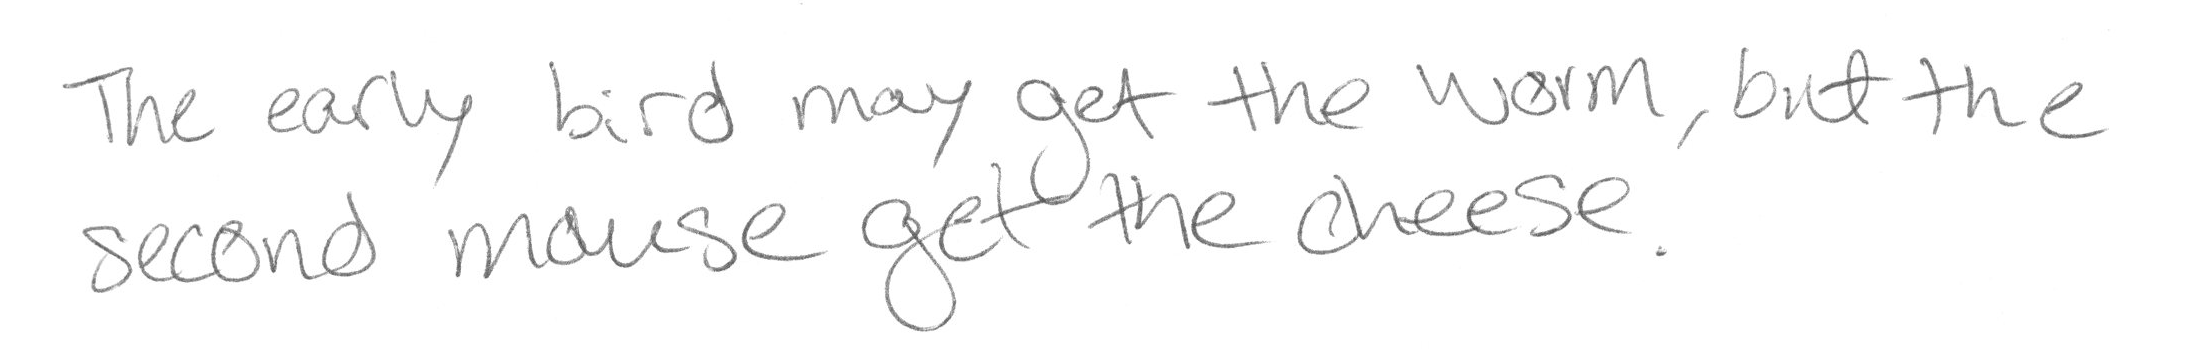 The early bird may get the worm, but the
second mouse get the cheese.